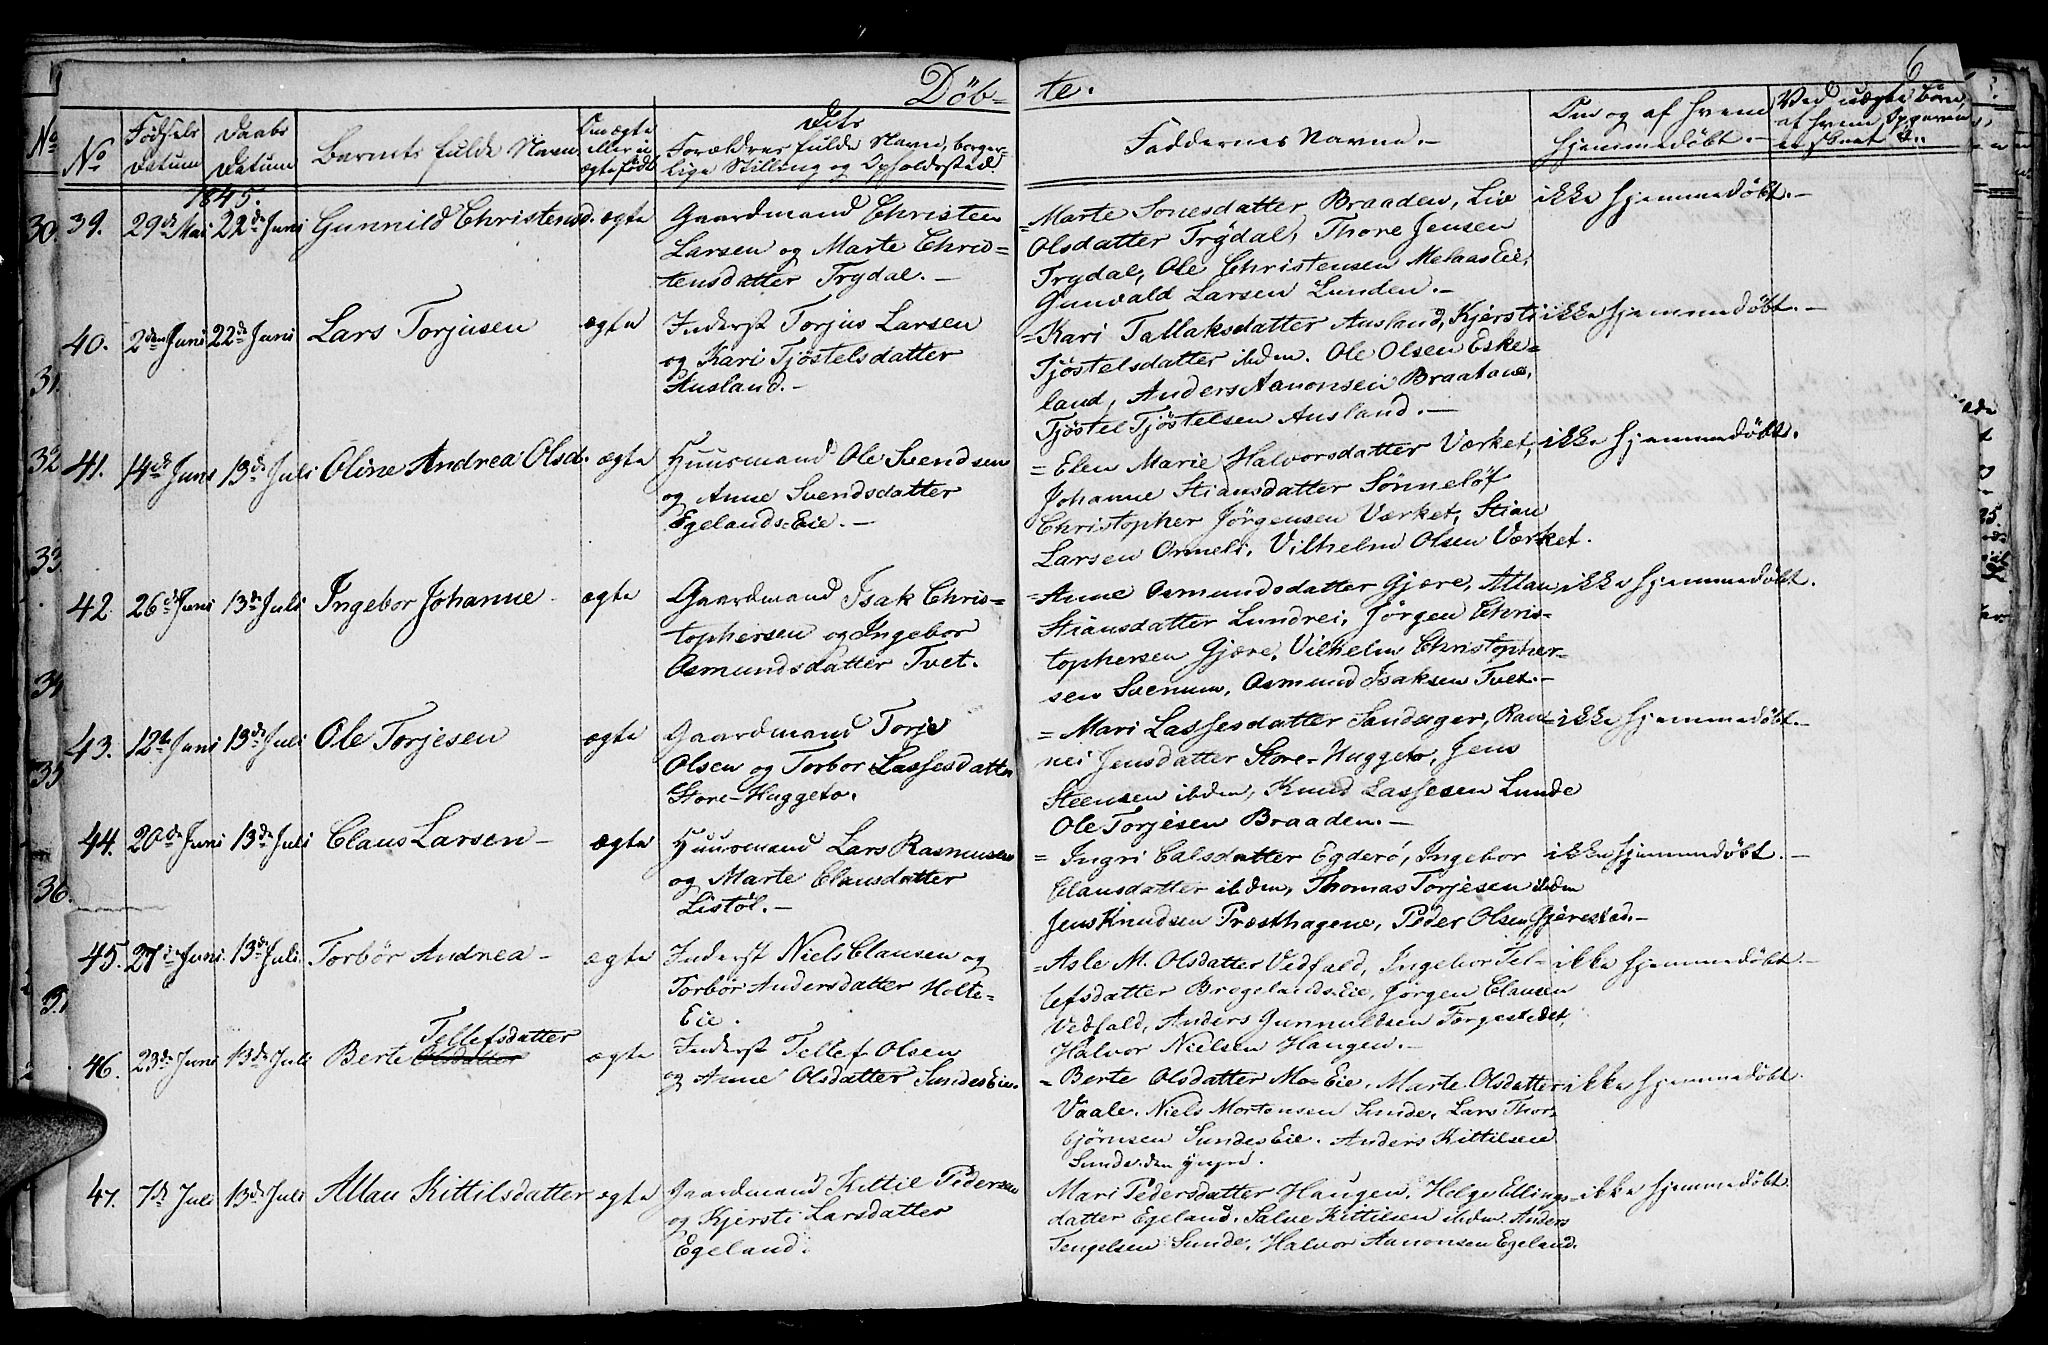 Döb=
te.
6
No
Fødsels Datum
Daabs Datum
Barnets fulde Navn
Om ægte eller uægte født
Dets Forældres fulde Navne, borgerlige Stilling og Opholdssted.
Faddernes Navne.-
Om og af hvem hjemmedøbt.-
Ved uægte Børn, af hvem Opgaven er skeet &.
1845.
39. 29de Mai 22de Juni Gunnild Christensd. ægte
Gaardmand Christen
Larsen og Marte Chris=
tensdatter Trydal.-
=Marte Sonesdatter Braaden, Liv
Olsdatter Trydal, Thore Jensen
Trydal, Ole Christensen Melaas Eie,
Gunvald Larsen Lunden.-
ikke hjemmedøbt.-
40. 2den Juni 22de Juni Lars Torjusen ægte
Inderst Torjus Larsen
og Kari Tjöstelsdatter
Ausland.-
=Kari Tallaksdatter Ausland, Kjersti
Tjöstelsdatter ibdm. Ole Olsen Eske=
land, Anders Aanonsen Braatane,
Tjöstel Tjöstelsen Ausland.-
ikke hjemmedøbt.-
41. 14de Juni 13de Juli Oline Andrea Olsd. ægte
Huusmand Ole Svendsen
og Anne Svendsdatter
Egelands=Eie.-
=Elen Marie Halvorsdatter Værket,
Johanne Stiansdatter Sönnelöf
Christopher Jörgensen Værket, Stian
Larsen Ormeli, Vilhelm Olsen Værket.
ikke hjemmedøbt.
42. 26de Juni 13de Juli Ingebor Johanne- ægte
Gaardmand Isak Chris=
tophersen og Ingebor
Osmundsdatter Tvet.
=Anne Osmundsdatter Gjære, Allau
Stiansdatter Lundrei, Jörgen Chris-
tophersen Gjære, Vilhelm Christopher-
sen Svenum, Osmund Isaksen Tvet.-
ikke hjemmedøbt.
43. 12te Juni 13de Juli Ole Torjesen ægte
Gaardmand Torje
Olsen og Torbor Lassesdatter
Store-Huggeto.
=Mari Lassesdatter Sandager, Ran-
nei Jensdatter Store-Huggeto, Jens
Steensen ibdm, Knud Lassesen Lunde
Ole Torjesen Braaden.-
ikke hjemmedøbt.-
44. 20de Juni 13de Juli Claus Larsen- ægte
Huusmand Lars Rasmusen
og Marte Clausdatter
Listöl.-
=Ingri Calsdatter Egderö, Ingebor
Clausdatter ibdm, Thomas Torjesen ibdm
Jens Knudsen Præsthagene, Peder Olsen Gjerestad.-
ikke hjemmedøbt.-
45. 27de Juni 13de Juli Torbör Andrea- ægte
Inderst Niels Clausen og
Torbör Andersdatter Holte=
Eie.
=Asle M. Olsdatter Vedfald, Ingebor Tel-
lefsdatter Bregelands Eie, Jörgen Clausen
Vedfald, Anders Gunnuldsen Torgestedet,
Halvor Nielsen Haugen.-
ikke hjemmedøbt-
46. 23de Juni 13de Juli Berte Olsdatter Tellefsdatter ægte
Inderst Tellef Olsen
og Anne Olsdatter Sundes Eie.
=Berte Olsdatter Mo=Eie, Marte Olsdatter
Vaale, Niels Mortensen Sunde, Lars Thor-
bjørnsen Sundes Eie. Anders Kittilsen
Sunde den yngre.
ikke hjemmedøbt.
47. 7de Juli 13de Juli Allau Kittilsdatter ægte
Gaardmand Kittil Pedersen
og Kjersti Larsdatter
Egeland.
Mari Pedersdatter Haugen, Helge Ellings-
datter Egeland. Salve Kittilsen ibdm. Anders
Tengelsen Sunde, Halvor Aanonsen Egeland.
ikke hjemmedøbt
No
30.
31.
32
33
34
35
36.